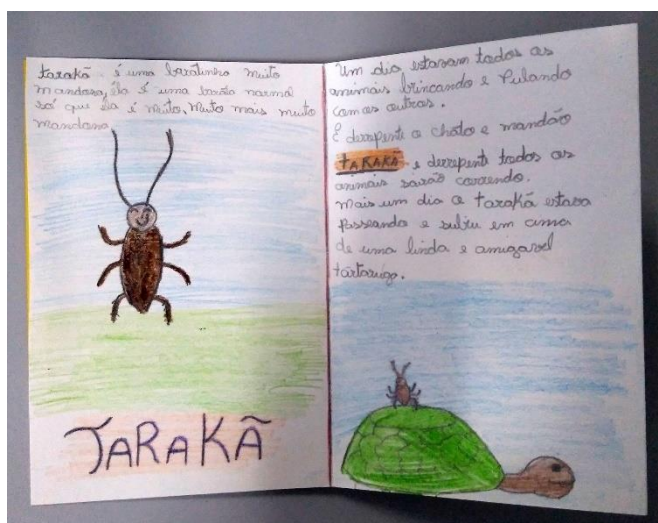 tarakã - é uma baratinha muito
mandona, ela é uma barata normal
só que ela é muito, muito mais muito
mandona.
TARAKÃ
Um dia estavam todos os
animais brincando e Pulando
com os outros.
E derrepente o chato e mandão
TARAKÃ e derrepente todos os
animais sairão correndo.
Mais um dia a tarakã estava
Passeando e subiu em cima
de uma linda e amigavel
tartaruga.